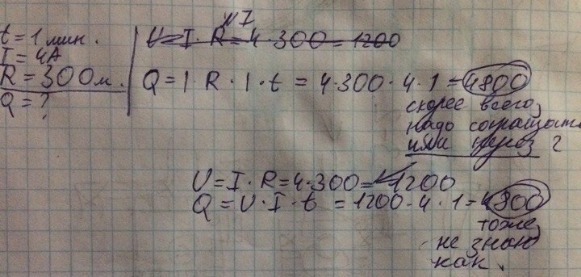 №1
t = 1 мин.
I = 4А
R = 300м.
Q = ?
U = I · R = 4 · 300 = 1200
Q = I · R · I · t = 4·300·4·1 = 4800
скорее всего,
надо сокращать
или через ?
U = I · R = 4·300 = 1200
Q = U · I · t = 1200·4·1 = 4800
тоже,
не знаю
как.